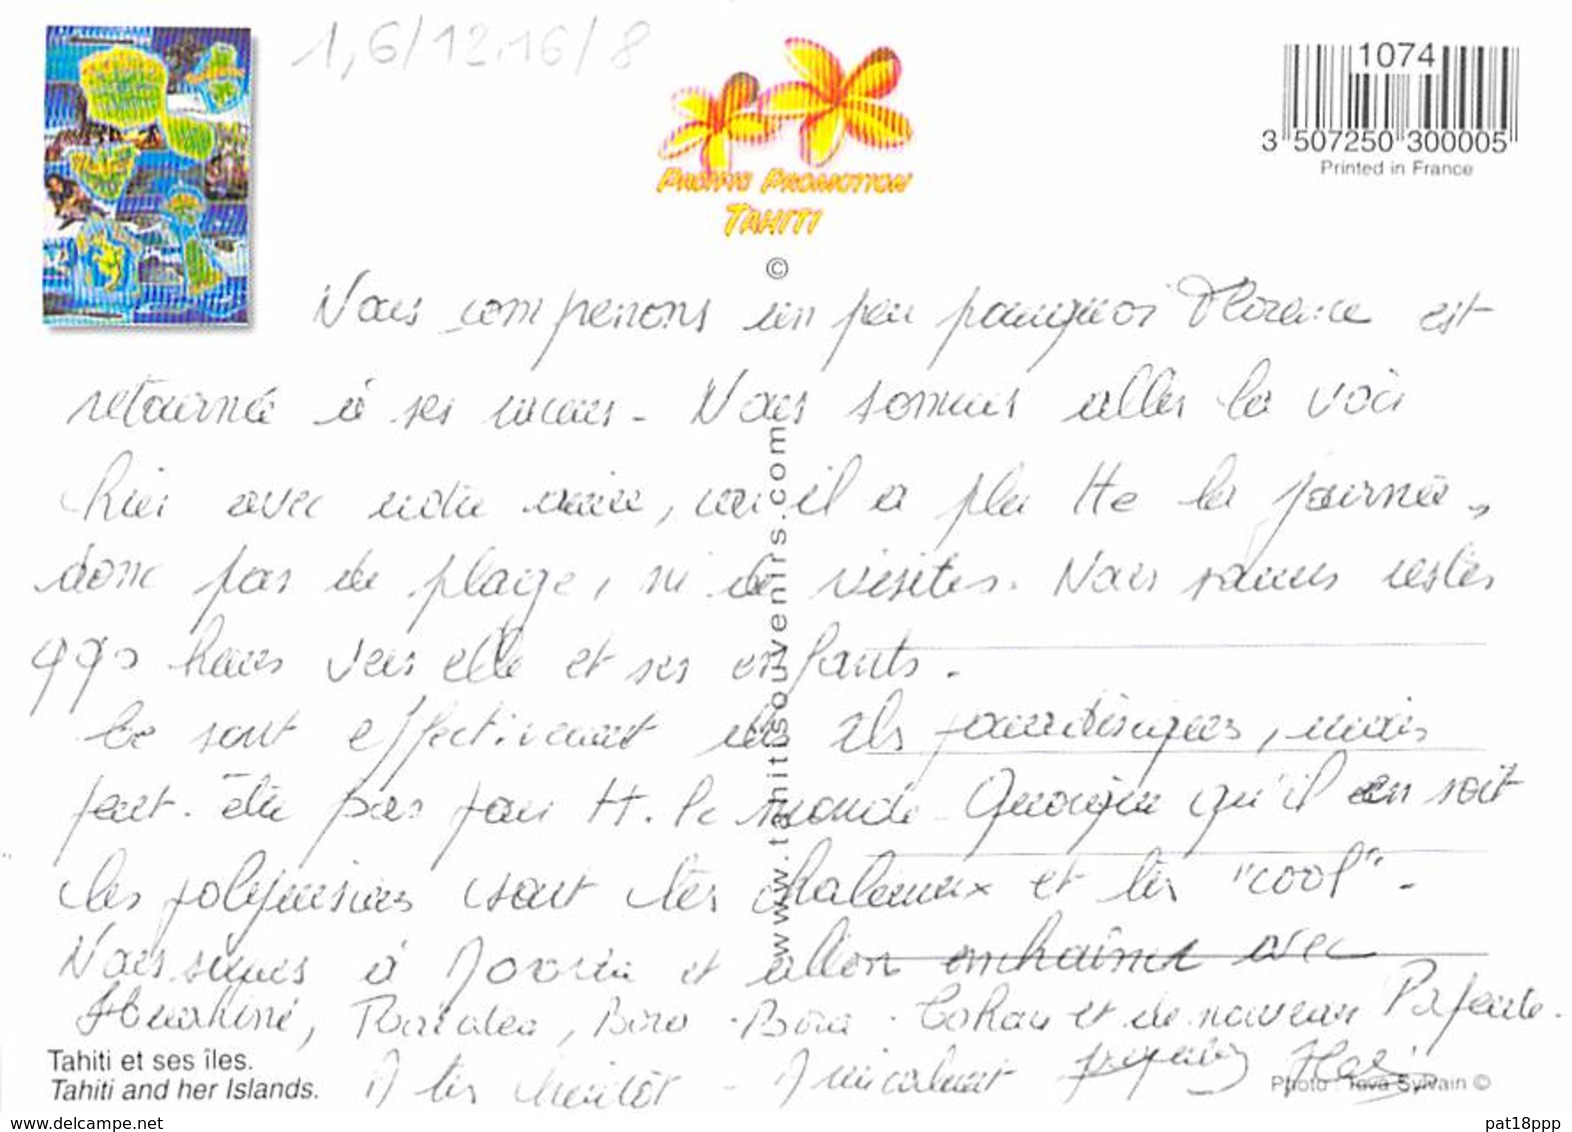 1,6/12.16/8
1074
3 507250 300005
Printed in France
PACIFIC PROMOTION
TAHITI
©
Nous comprenons un peu pourquoi Florence est
retournée à ses - Nous sommes aller la voir
hier avec notre, il a plu tte la journée,
donc pas de plage, ni de visites. Nous sommes restés
qqs heures vers elle et ses enfants.
Ce sont effectivement des îles paradisiaques, mais
peut. être pas pour tt. le monde. Quoique qu'il en soit
les polynésiens sont très chaleureux et très "cool".
Nous sommes à Moorea et allons enchaîner avec
Huahiné, Raiatea, Bora-Bora. et de nouveau Papeete.
A très bientôt - Amicalement
www.tahitisouvenirs.com
Tahiti et ses îles.
Tahiti and her Islands.
Photo : Teva Sylvain ©
www.delcampe.net
pat18ppp